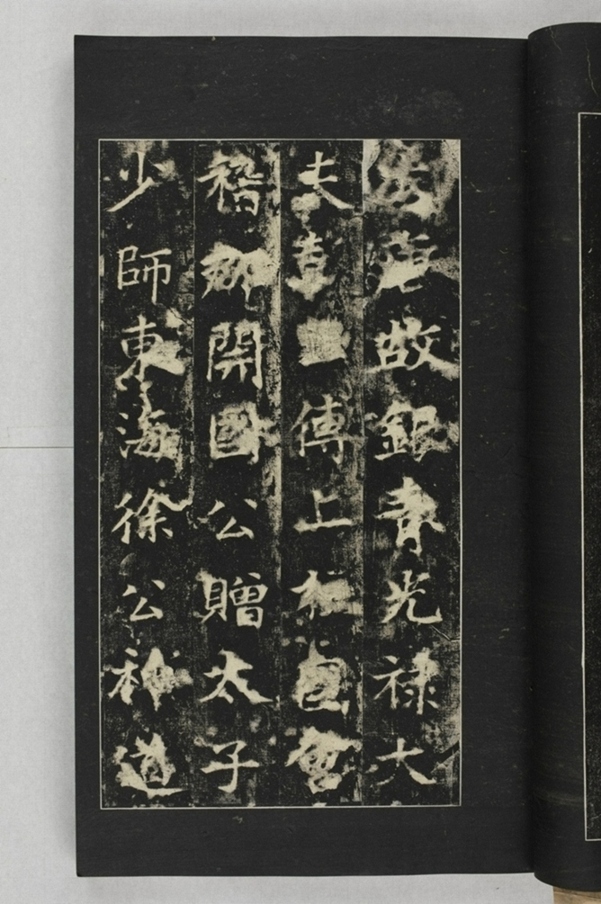 唐故銀青光祿大
夫彭傅上柱國會
稽郡開國公贈太子
少師東海徐公神道